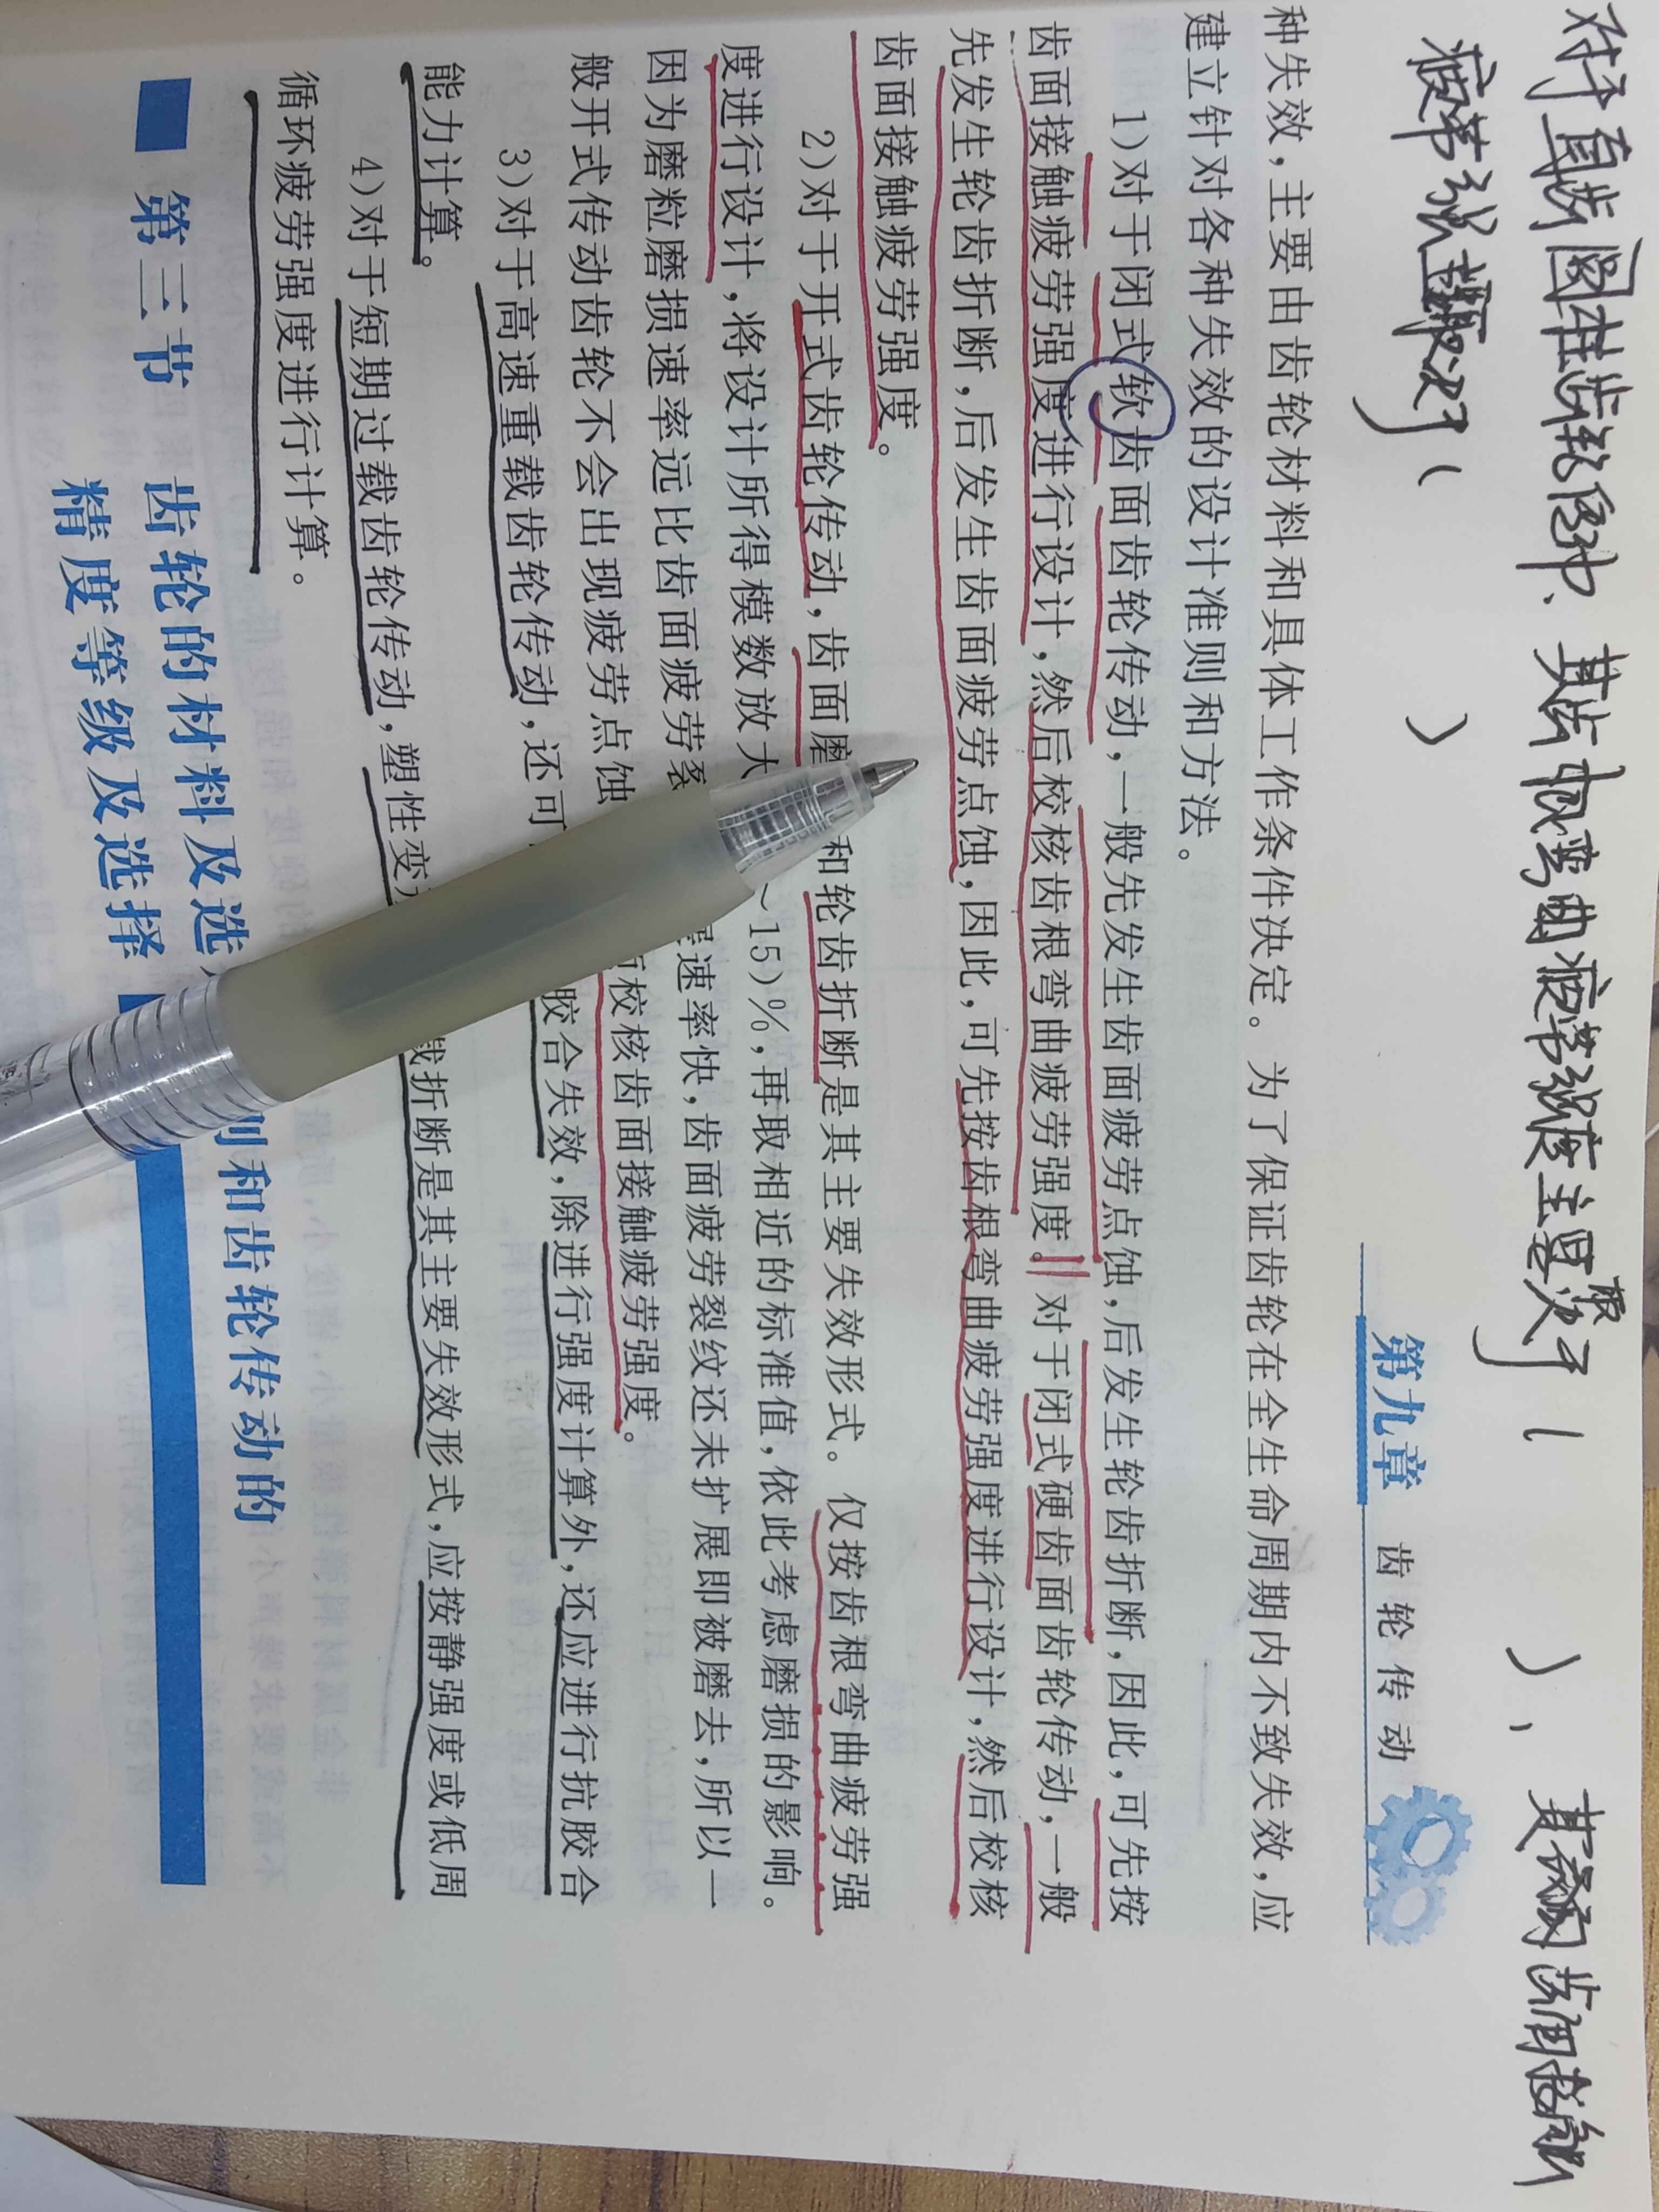 对于直齿圆柱齿轮传动、其齿根弯曲疲劳强度主要取决于(  )、其齿面接触
疲劳强度主要取决于(  )
第九章 齿轮传动
种失效,主要由齿轮材料和具体工作条件决定。为了保证齿轮在全生命周期内不致失效,应
建立针对各种失效的设计准则和方法。
1)对于闭式软齿面齿轮传动,一般先发生齿面疲劳点蚀,后发生轮齿折断,因此,可先按
齿面接触疲劳强度进行设计,然后校核齿根弯曲疲劳强度。对于闭式硬齿面齿轮传动,一般
先发生轮齿折断,后发生齿面疲劳点蚀,因此,可先按齿根弯曲疲劳强度进行设计,然后校核
齿面接触疲劳强度。
2)对于开式齿轮传动,齿面磨 和轮齿折断是其主要失效形式。仅按齿根弯曲疲劳强
度进行设计,将设计所得模数放大 ~15)%,再取相近的标准值,依此考虑磨损的影响。
因为磨粒磨损速率远比齿面疲劳裂 速率快,齿面疲劳裂纹还未扩展即被磨去,所以一
般开式传动齿轮不会出现疲劳点蚀 校核齿面接触疲劳强度。
3)对于高速重载齿轮传动,还可 胶合失效,除进行强度计算外,还应进行抗胶合
能力计算。
4)对于短期过载齿轮传动,塑性变 折断是其主要失效形式,应按静强度或低周
循环疲劳强度进行计算。
第三节 齿轮的材料及选 和齿轮传动的
精度等级及选择